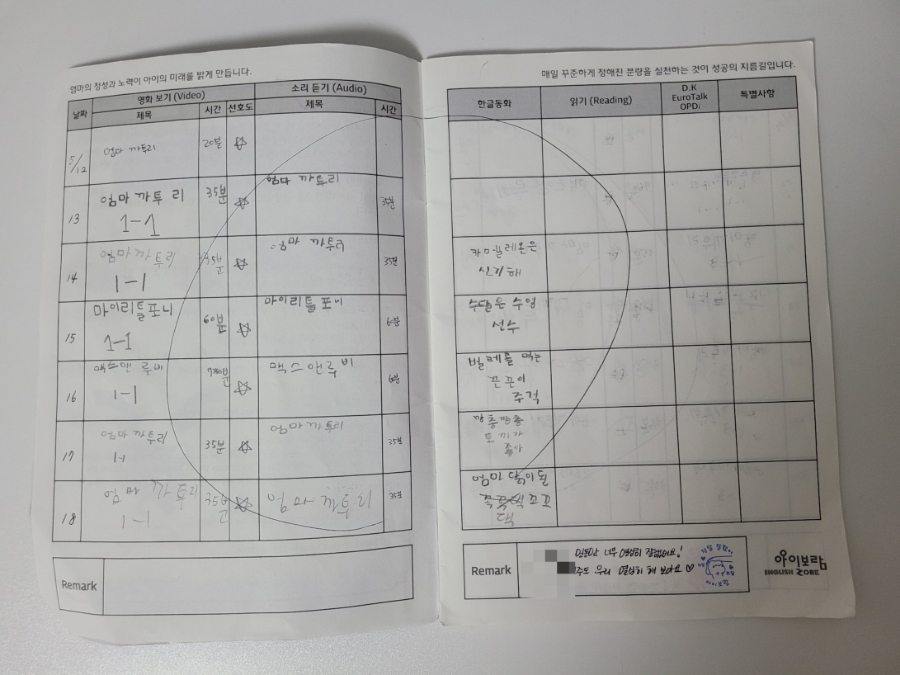 엄마의 정성과 노력이 아이의 미래를 밝게 만듭니다.
날짜
영화 보기 (Video)
소리 듣기 (Audio)
제목
시간
선호도
제목
시간
5/12
엄마 까투리
20분
13
엄마 까투리
1-1
35분
엄마 까투리
35분
14
엄마 까투리
1-1
35분
엄마 까투리
35분
15
마이리틀포니
1-1
60분
마이리틀포니
16
맥스앤 루비
1-1
맥스앤루비
17
엄마 까투리
1-1
35분
엄마 까투리
35분
18
엄마 까투리
1-1
35분
엄마 까투리
35분
Remark
매일 꾸준하게 정해진 분량을 실천하는 것이 성공의 지름길입니다.
한글동화
읽기 (Reading)
D.K
EuroTalk
OPDi
특별사항
수달은 수영
선수
먹는
끈끈이
주걱
깡충깡충
토끼가
좋아
엄마 닭이 돌
Remark
너무 열심히 잘했어요!
우리 열심히 해 보자 ♡
아이보람
ENGLISH ZONE